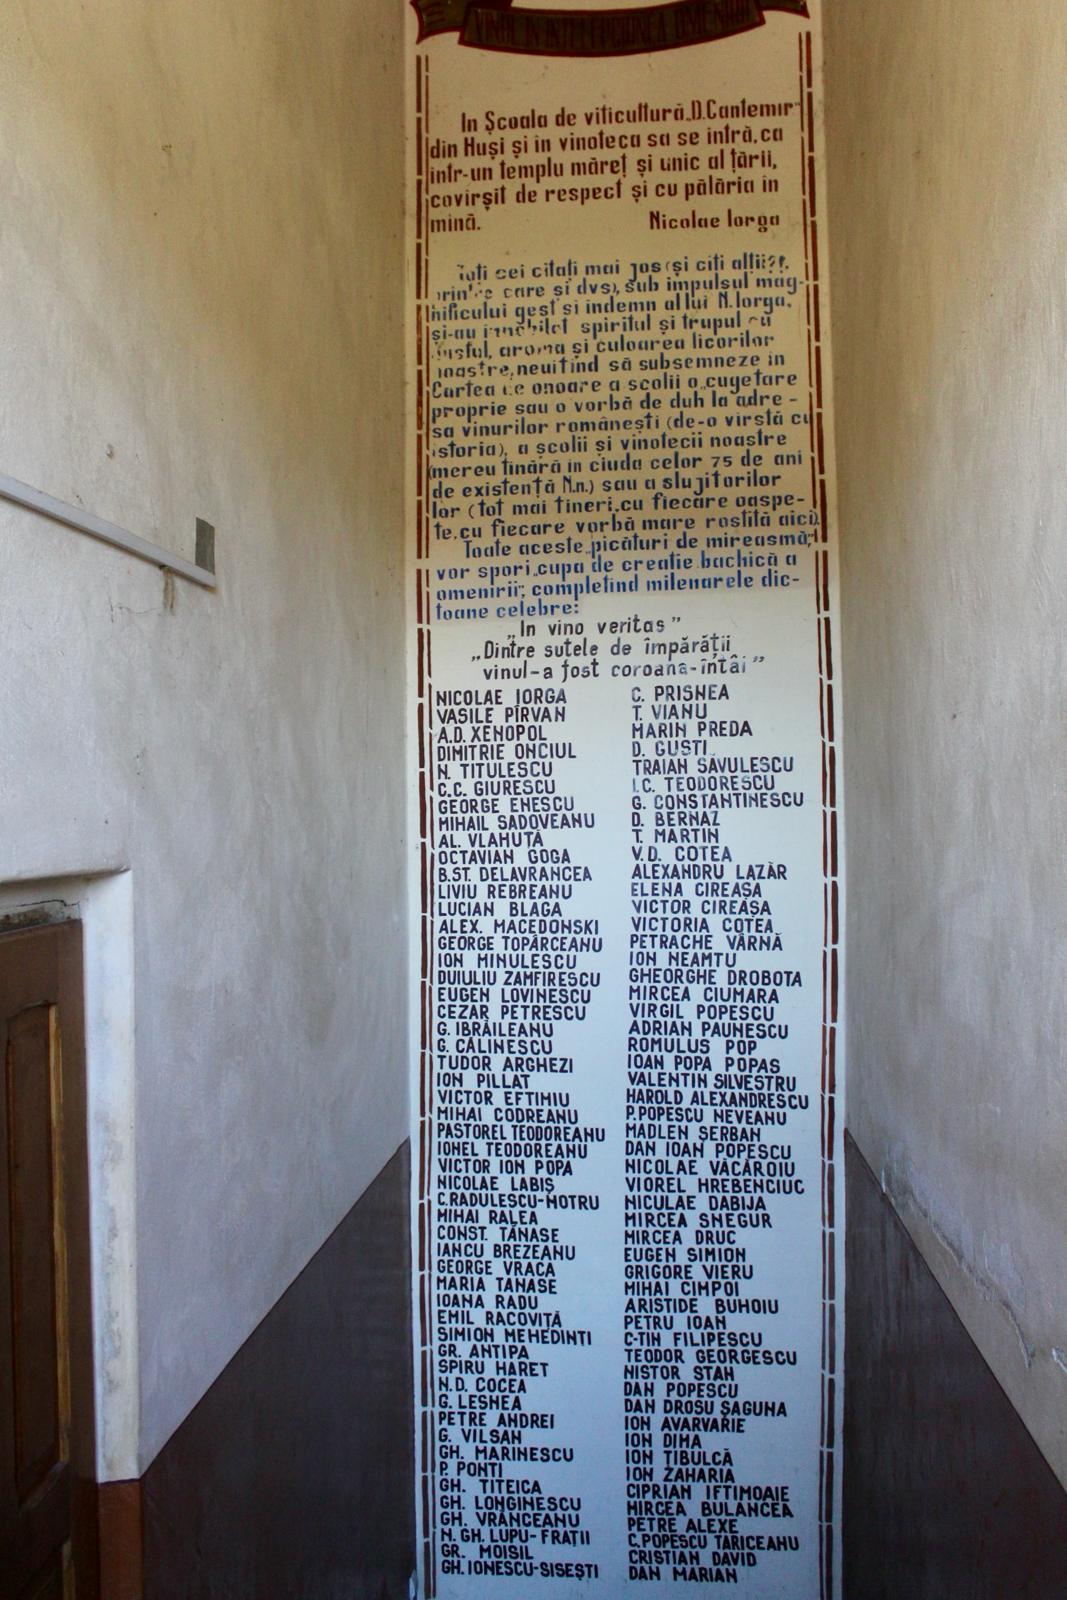 VINUL ÎN INTELEPCIUNEA OMENIRII
In Școala de viticultură „D. Cantemir”
din Huși și in vinoteca sa se intră, ca
intr-un templu măreț și unic al țării,
covirșit de respect și cu pălăria in
mină.
Nicolae Iorga
Toți cei citați mai jos (și citi alții?!,
printre care și dvs), sub impulsul mag-
nificului gest si indemn al lui N. Iorga,
și-au innobilat spiritul și trupul cu
gustul, aroma și culoarea licorilor
noastre, neuitind să subsemneze in
Cartea de onoare a scolii o „cugetare
proprie sau o vorbă de duh la adre-
sa vinurilor românești (de-o virstă cu
istoria), a școlii și vinotecii noastre
(mereu tinără in ciuda celor 75 de ani
de existență N.n.) sau a slujitorilor
lor (tot mai tineri, cu fiecare oaspe-
te, cu fiecare vorbă mare rostită aici).
Toate aceste „picături de mireasmă”
vor spori „cupa de creatie bachică a
omenirii”, completind milenarele dic-
toane celebre:
„In vino veritas”
„Dintre sutele de împărății
vinul-a fost coroana-întâi”
NICOLAE IORGA
VASILE PÎRVAN
A.D. XENOPOL
DIMITRIE ONCIUL
N. TITULESCU
C.C. GIURESCU
GEORGE ENESCU
MIHAIL SADOVEANU
AL. VLAHUȚĂ
OCTAVIAN GOGA
B.ST. DELAVRANCEA
LIVIU REBREANU
LUCIAN BLAGA
ALEX. MACEDONSKI
GEORGE TOPÂRCEANU
ION MINULESCU
DUIULIU ZAMFIRESCU
EUGEN LOVINESCU
CEZAR PETRESCU
G. IBRĂILEANU
G. CĂLINESCU
TUDOR ARGHEZI
ION PILLAT
VICTOR EFTIMIU
MIHAI CODREANU
PASTOREL TEODOREANU
IONEL TEODOREANU
VICTOR ION POPA
NICOLAE LABIȘ
C.RADULESCU-MOTRU
MIHAI RALEA
CONST. TĂNASE
IANCU BREZEANU
GEORGE VRACA
MARIA TANASE
IOANA RADU
EMIL RACOVIȚĂ
SIMION MEHEDINTI
GR. ANTIPA
SPIRU HARET
N.D. COCEA
G. LESNEA
PETRE ANDREI
G. VILSAN
GH. MARINESCU
P. PONTI
GH. TITEICA
GH. LONGINESCU
GH. VRÂNCEANU
N. GH. LUPU-FRAȚII
GR. MOISIL
GH. IONESCU-SISEȘTI
C. PRISNEA
T. VIANU
MARIN PREDA
D. GUSTI
TRAIAN SĂVULESCU
I.C. TEODORESCU
G. CONSTANTINESCU
D. BERNAZ
T. MARTIN
V.D. COTEA
ALEXANDRU LAZĂR
ELENA CIREAȘA
VICTOR CIREAȘA
VICTORIA COTEA
PETRACHE VÂRNĂ
ION NEAMTU
GHEORGHE DROBOTA
MIRCEA CIUMARA
VIRGIL POPESCU
ADRIAN PAUNESCU
ROMULUS POP
IOAN POPA POPAS
VALENTIN SILVESTRU
HAROLD ALEXANDRESCU
P. POPESCU NEVEANU
MADLEN ȘERBAN
DAN IOAN POPESCU
NICOLAE VĂCĂROIU
VIOREL HREBENCIUC
NICULAE DABIJA
MIRCEA SNEGUR
MIRCEA DRUC
EUGEN SIMION
GRIGORE VIERU
MIHAI CIMPOI
ARISTIDE BUHOIU
PETRU IOAN
C-TIN FILIPESCU
TEODOR GEORGESCU
NISTOR STAN
DAN POPESCU
DAN DROSU ȘAGUNA
ION AVARVARIE
ION DIMA
ION TIBULCĂ
ION ZAHARIA
CIPRIAN IFTIMOAIE
MIRCEA BULANCEA
PETRE ALEXE
C. POPESCU TARICEANU
CRISTIAN DAVID
DAN MARIAN